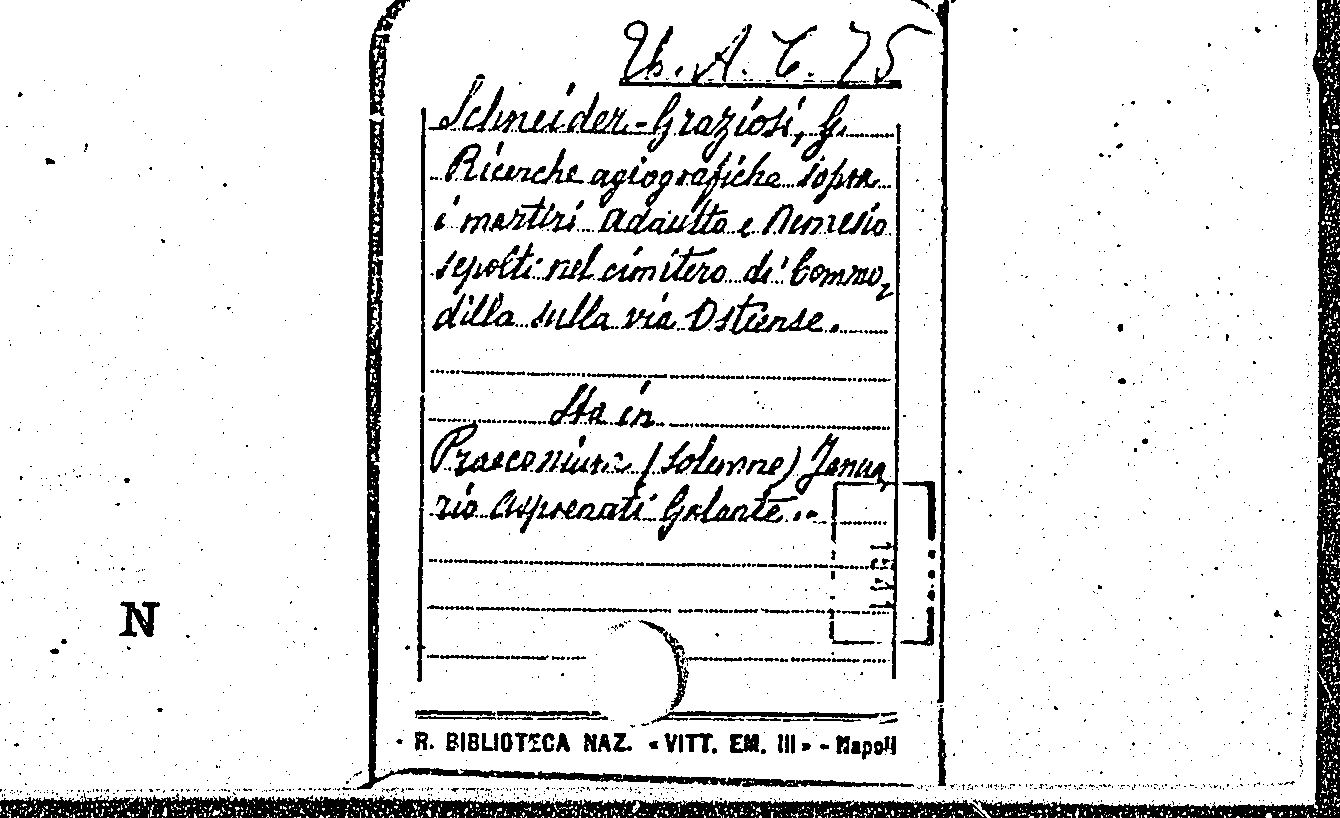 Ub. A. C. 75
Schneider-Graziosi, G.
Ricerche agiografiche sopra
i martiri Adautto e Nemesio
sepolti nel cimitero di Commo-
dilla sulla via Ostiense.
Sta in
Praeconium (solemne) Janua-
rio Asprenati Golante..
N
R. BIBLIOTECA NAZ. «VITT. EM. III» - Napoli